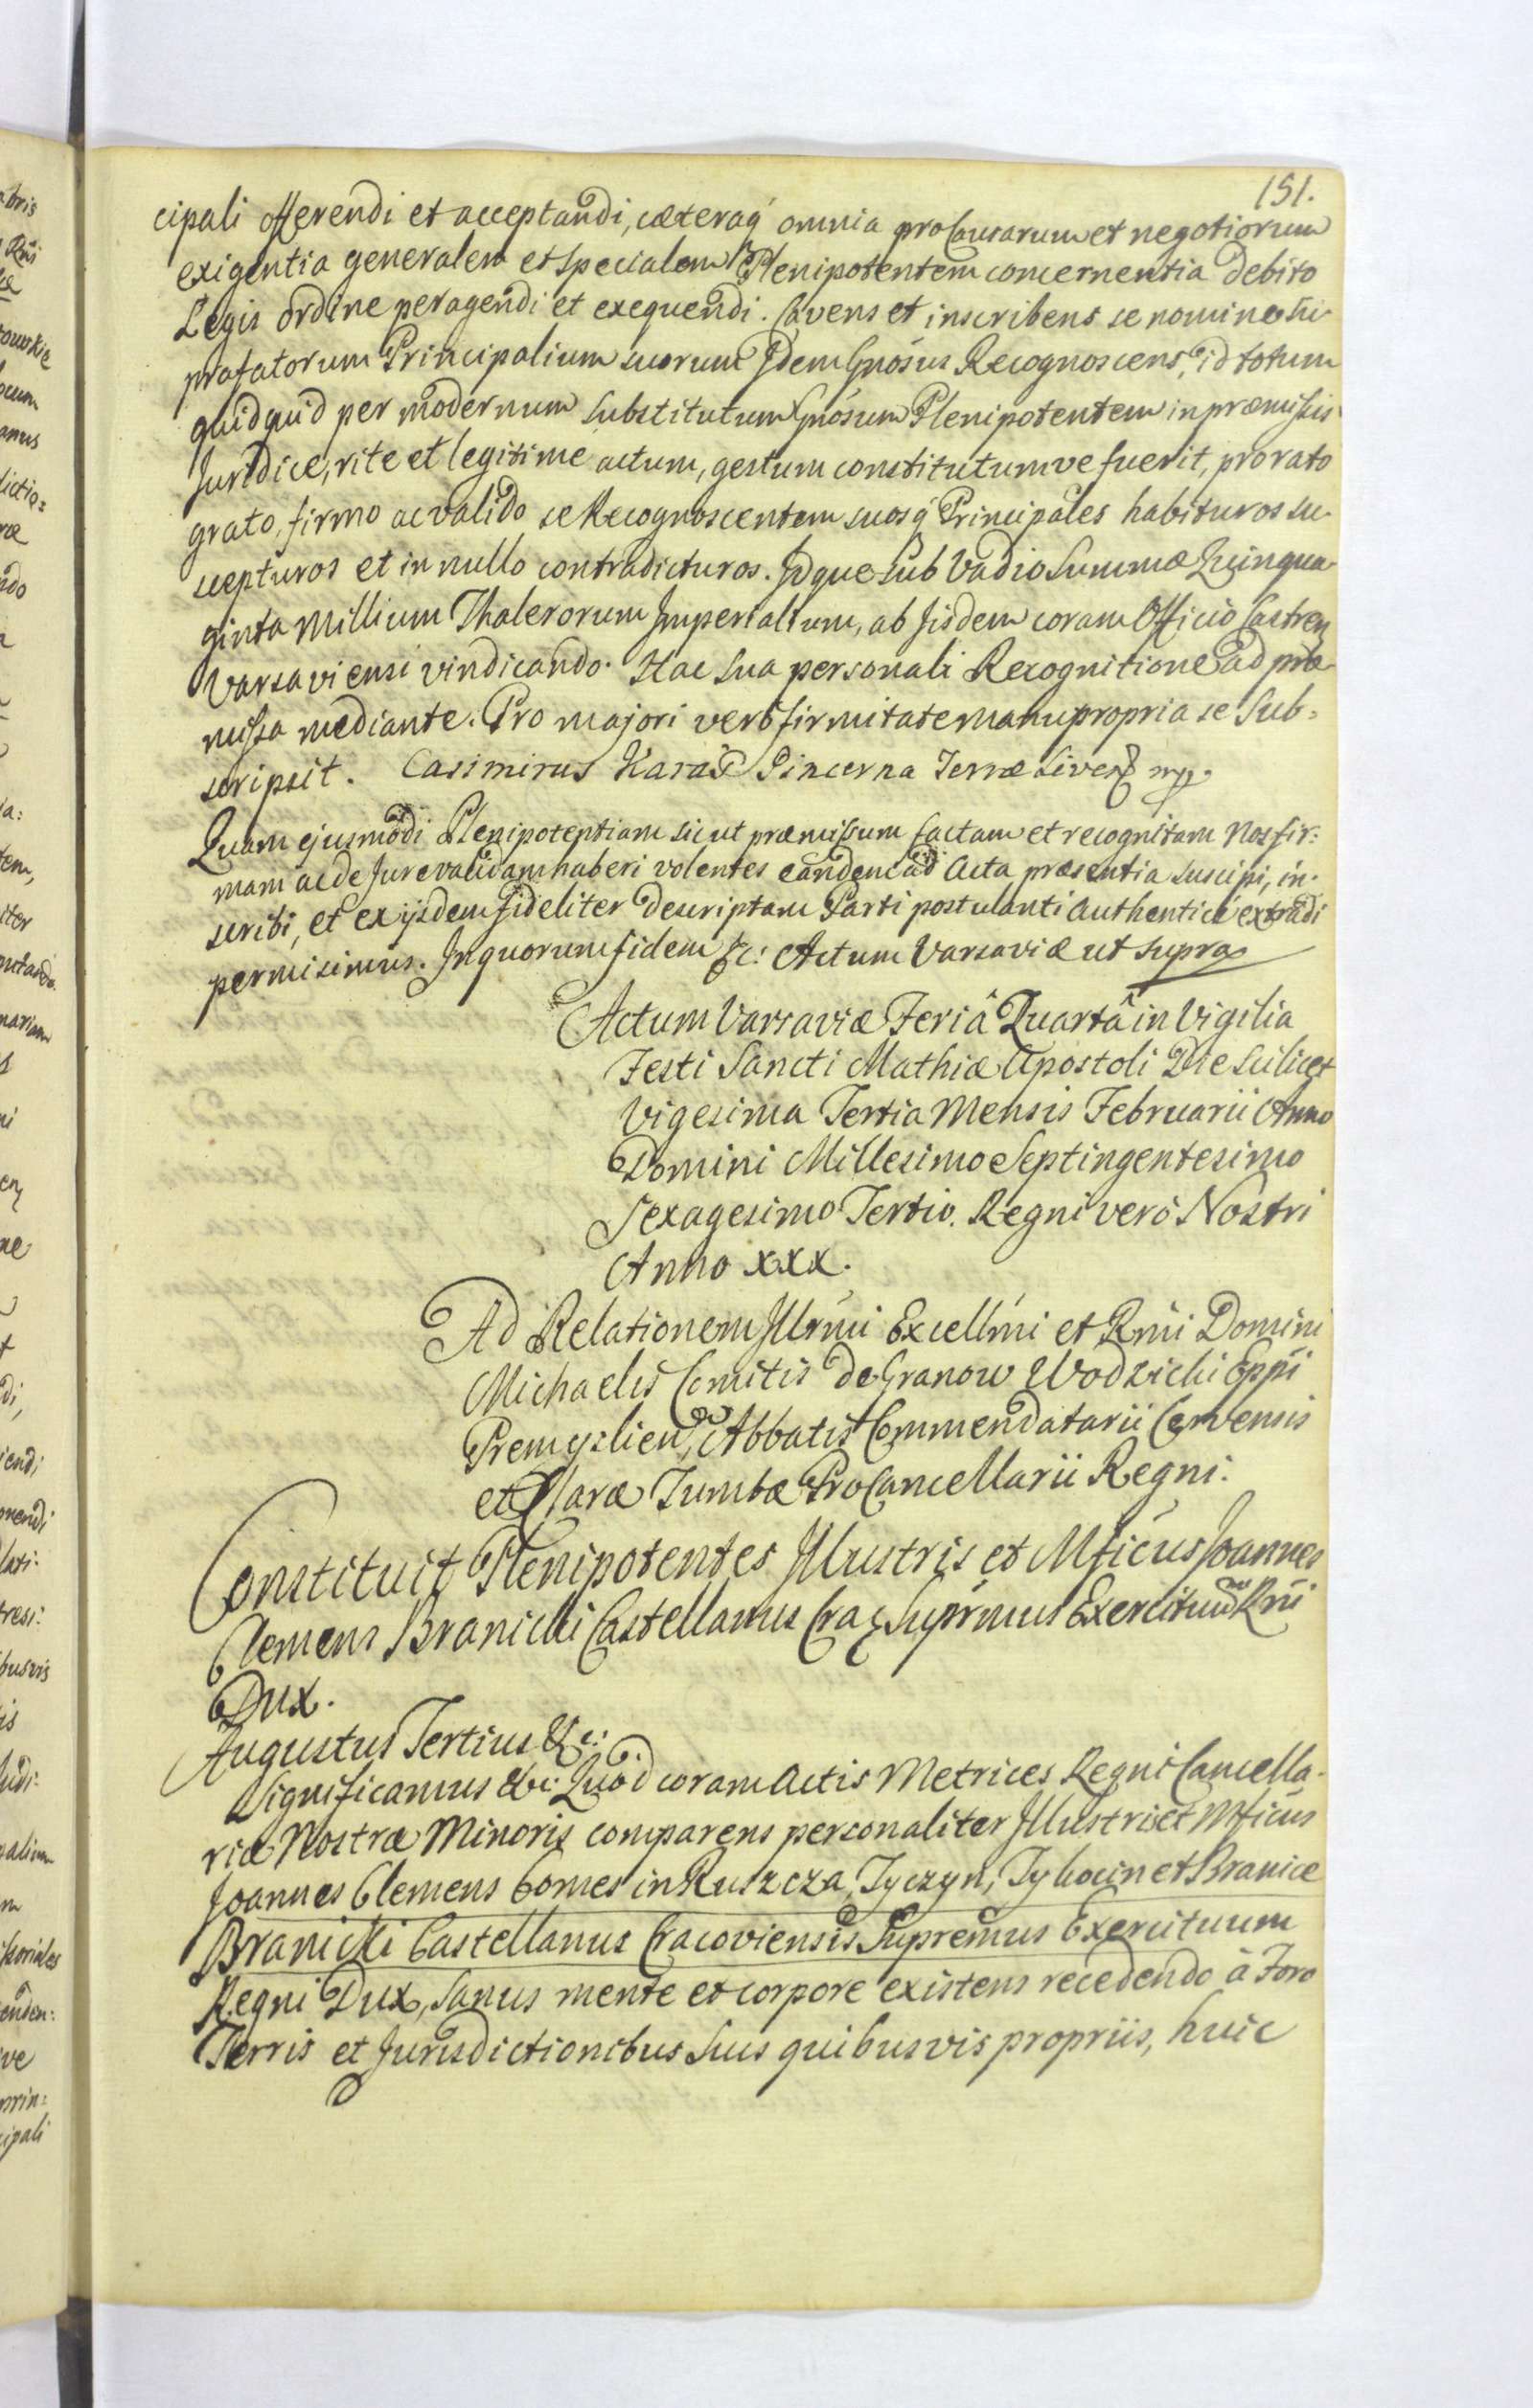 151.
cipali offerendi et acceptandi, cæteraq́ omnia pro Causarum et negotiorum
exigentia generalem et specialem Plenipotentem concernentia debito
Legis ordine peragendi et exequendi. Cavens et inscribens se nomine sui
præfatorum Principalium suorum Idem Gnosus Recognoscens, id totum
quidquid per modernum substitutum Gnosum Plenipotentem in præmissis
Juridice, rite et legitime actum, gestum constitutumve fuerit, pro rato
grato, firmo ac valido se Recognoscentem suosq́ Principales habituros su-
scepturos et in nullo contradicturos. Idque sub Vadio Summæ Quinqua-
ginta Millium Thalerorum Imperialium, ab Iisdem coram Officio Castren
Varsaviensi vindicando. Hac sua personali Recognitione ad præ-
missa mediante. Pro majori verò firmitate manu propria se sub=
scripsit. Casimirus Karaś Pincerna Terræ Liven mp.
Quam ejusmodi Plenipotentiam sicut præmissum factam et recognitam Nos fir:
mam ac de Jure validam haberi volentes eandem ad Acta præsentia suscipi, in-
scribi, et ex ijsdem fideliter descriptam Parti postulanti authenticè extradi
permisimus. In quorum fidem &c: Actum Varsaviæ ut supra
Actum Varsaviæ Feriâ Quartâ in Vigilia
Festi Sancti Mathiæ Apostoli Die scilicet
Vigesima Tertia Mensis Februarii Anno
Domini Millesimo Septingentesimo
Sexagesimo Tertio. Regni verò Nostri
Anno XXX.
Ad Relationem Illrmi Excellmi et Rmi Domini
Michaelis Comitis de Granow Wodzicki Eppi
Premyslien, Abbatis Commendatarii
et Claræ Tumbæ ProCancellarii Regni.
Constituit Plenipotentes Illustris et Mficus Joannes
Clemens Branicki Castellanus Crac Suprmus Exercituum Rni
Dux.
Augustus Tertius &c:
Significamus &c: Quod coram Actis Metrices Regni Cancella-
riæ Nostræ Minoris comparens personaliter Illustris et Mficus
Joannes Clemens Comes in Ruszcza, Tyczyn, Tykocin et Branice
Branicki Castellanus Cracoviensis Supremus Exercituum
Regni Dux, sanus mente et corpore existens recedendo à Foro
Terris et Jurisdictionibus suis quibusvis propriis, huic